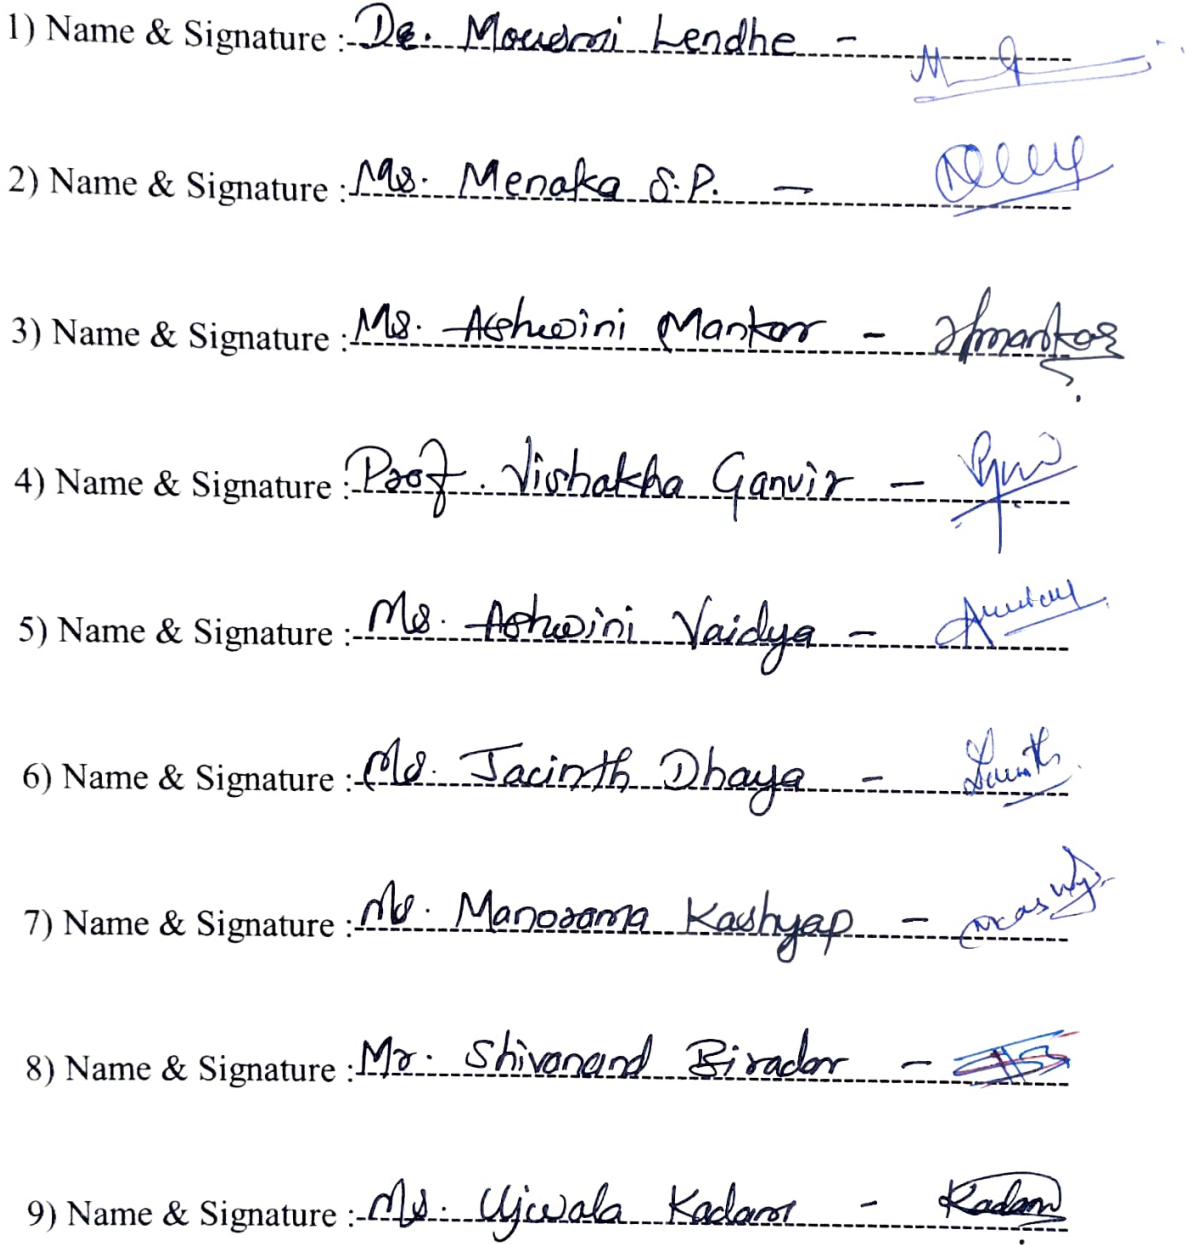 1) Name & Signature : Dr. Mousmi Lendhe -
2) Name & Signature : Ms. Menaka S.P. -
3) Name & Signature : Ms. Ashwini Mankar - Mankar
4) Name & Signature : Prof. Vishakha Ganvir -
5) Name & Signature : Ms. Ashwini Vaidya -
6) Name & Signature : Ms. Jacinth Dhaya -
7) Name & Signature : Ms. Manorama Kashyap -
8) Name & Signature : Mr. Shivanand Biradar -
9) Name & Signature : Ms. Ujwala Kadam - Kadam